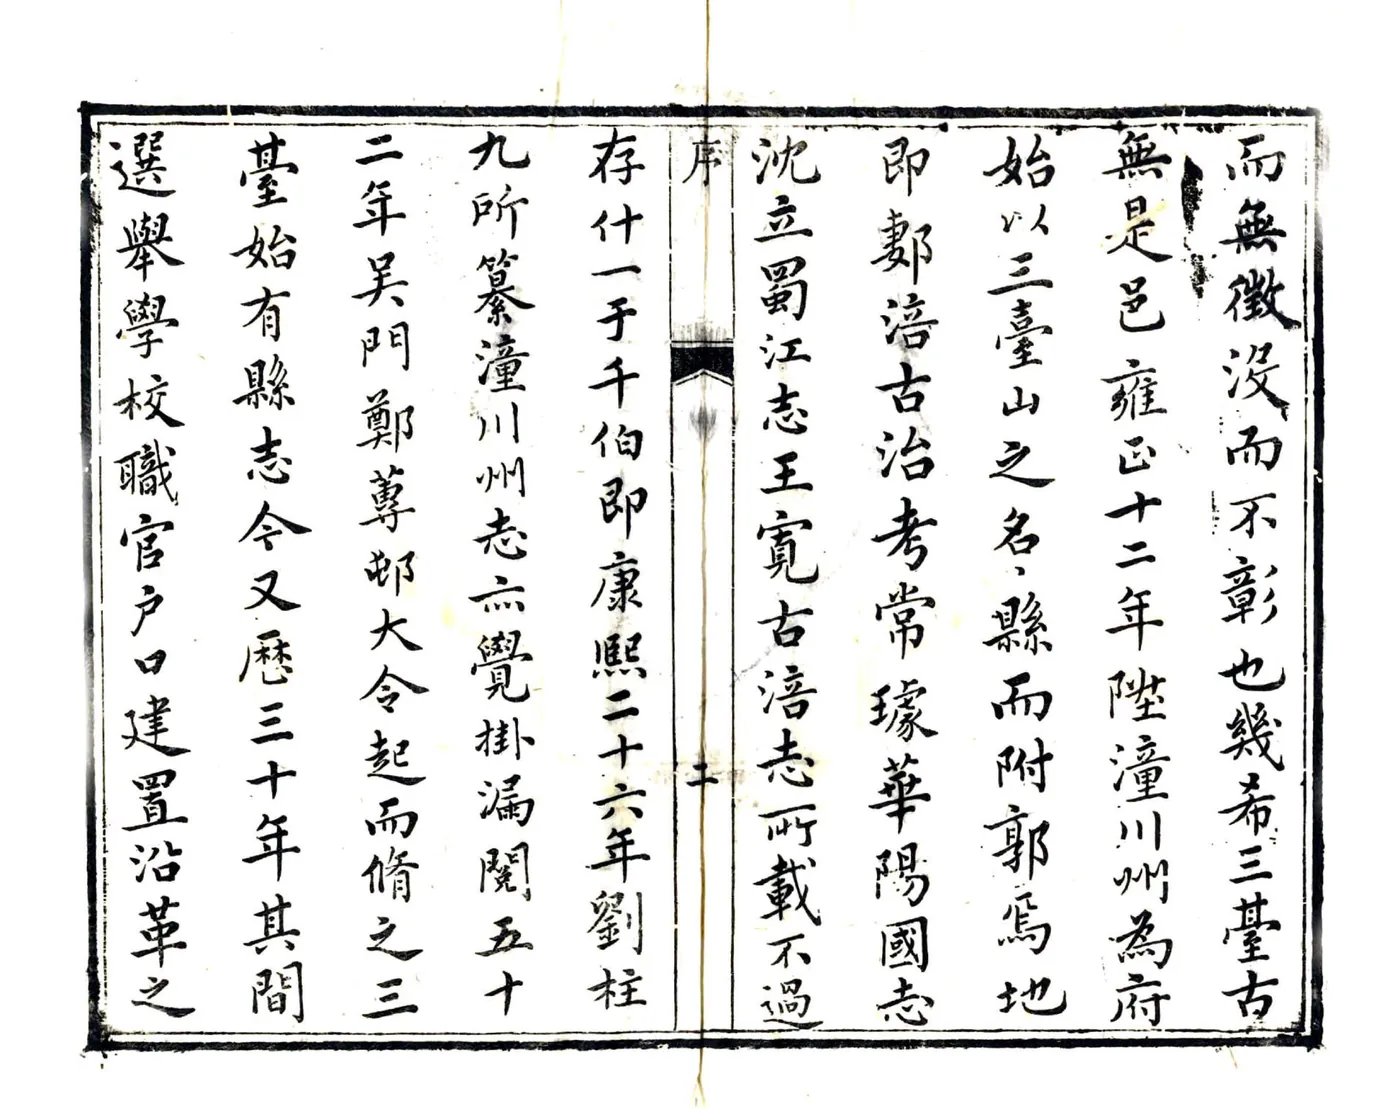 而無徵没而不彰也幾希三臺古
無是邑雍正十二年陞潼川州為府
始以三臺山之名名縣而附郭焉地
即郪涪古治考常璩華陽國志
沈立蜀江志王寬古涪志所載不過
序
二
存什一于千伯即康熙二十六年劉柱
九所纂潼川州志亦覺掛漏閱五十
二年吴門鄭蓴邨大令起而脩之三
臺始有縣志今又歴三十年其間
選舉學校職官户口建置沿革之